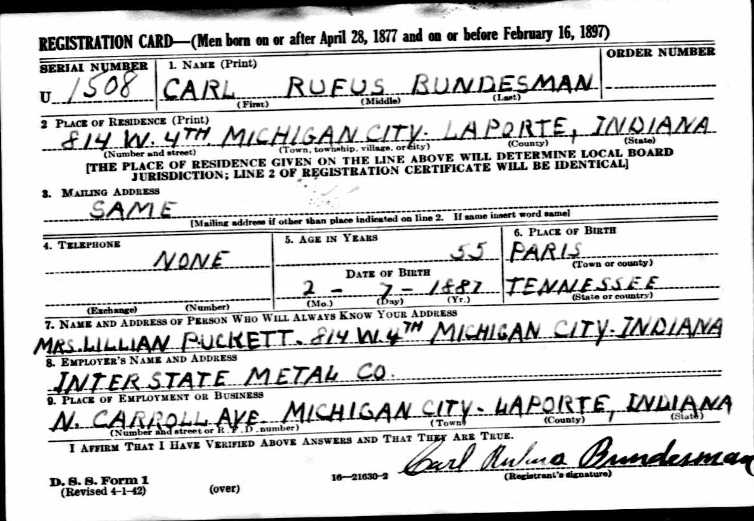 REGISTRATION CARD—(Men born on or after April 28, 1877 and on or before February 16, 1897)
SERIAL NUMBER 1. NAME (Print) ORDER NUMBER
U 1508 CARL RUFUS BUNDESMAN
(First) (Middle) (Last)
2 PLACE OF RESIDENCE (Print)
814 W. 4TH MICHIGAN CITY- LAPORTE, INDIANA
(Number and street) (Town, township, village, or city) (County) (State)
[THE PLACE OF RESIDENCE GIVEN ON THE LINE ABOVE WILL DETERMINE LOCAL BOARD
JURISDICTION; LINE 2 OF REGISTRATION CERTIFICATE WILL BE IDENTICAL]
3. MAILING ADDRESS
SAME
[Mailing address if other than place indicated on line 2. If same insert word same]
4. TELEPHONE 5. AGE IN YEARS 6. PLACE OF BIRTH
NONE 55 PARIS
(Town or county)
DATE OF BIRTH
2 - 7 - 1887 TENNESSEE
(Exchange) (Number) (Mo.) (Day) (Yr.) (State or country)
7. NAME AND ADDRESS OF PERSON WHO WILL ALWAYS KNOW YOUR ADDRESS
MRS. LILLIAN PUCKETT- 814 W. 4TH MICHIGAN CITY- INDIANA
8. EMPLOYER'S NAME AND ADDRESS
INTERSTATE METAL CO.
9. PLACE OF EMPLOYMENT OR BUSINESS
N. CARROLL AVE. MICHIGAN CITY- LAPORTE, INDIANA
(Number and street or R. F. D. number) (Town) (County) (State)
I AFFIRM THAT I HAVE VERIFIED ABOVE ANSWERS AND THAT THEY ARE TRUE.
Carl Rufus Bundesman
D. S. S. Form 1 16—21630-2 (Registrant's signature)
(Revised 4-1-42) (over)